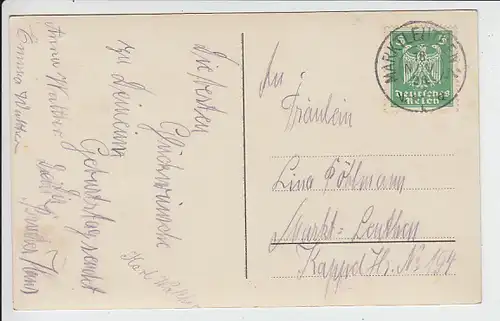 Die besten
Glückwünsche
zu Deinem
Geburtstag sendet
Anna Walther
Emma Walther
Karl
Hans
An
Fräulein
Lina Pöhlmann
Markt-Leuthen
Kappel Hs. No 194
Deutsches
Reich
MARKTLEUTHEN